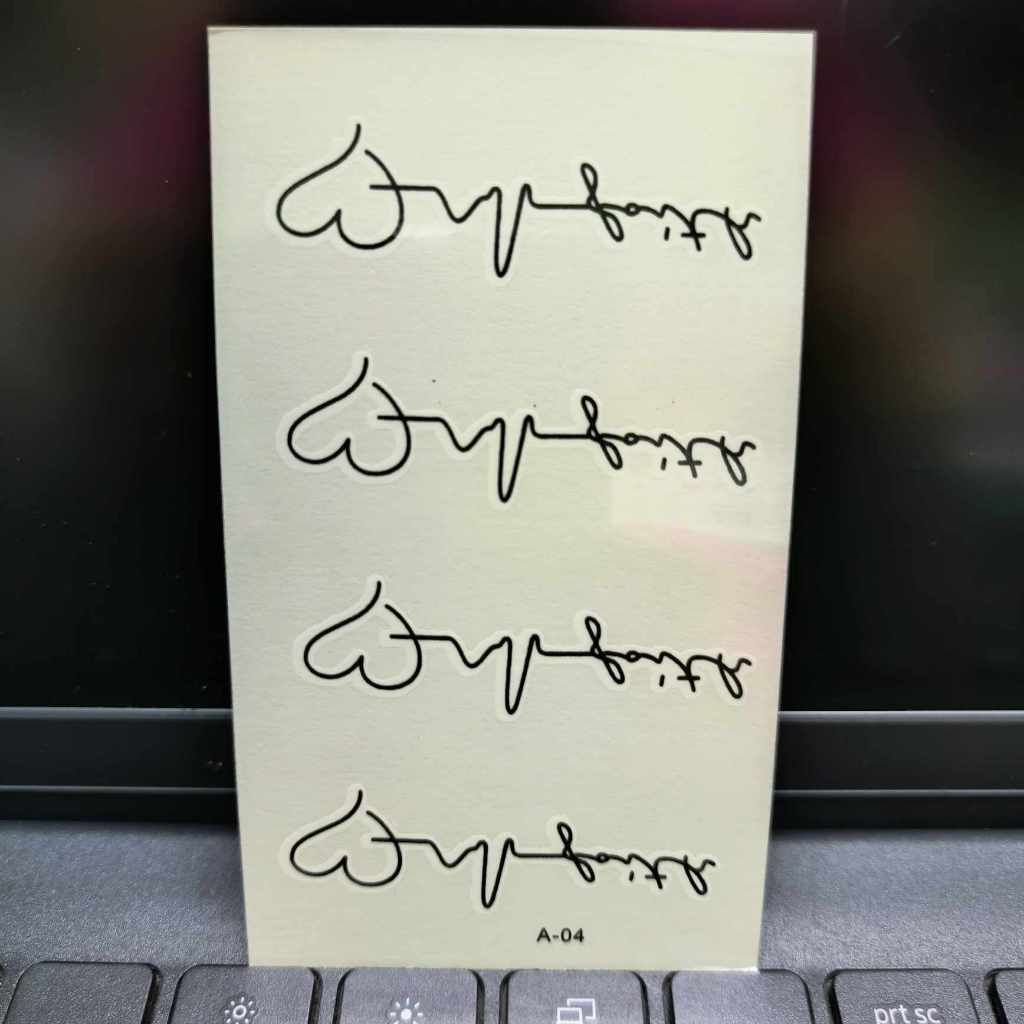 faith
faith
faith
faith
A-04
prt sc